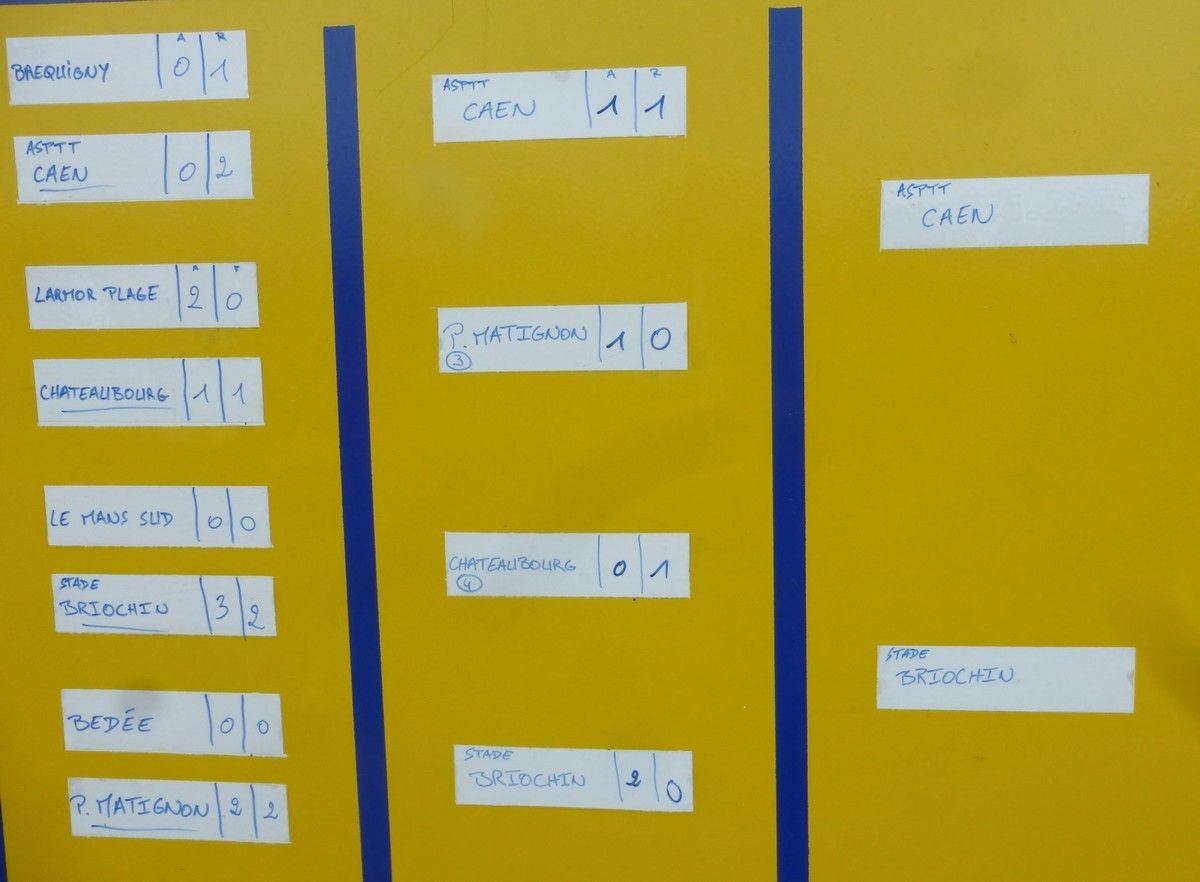 A R
BREQUIGNY 0 1
ASPTT
CAEN 0 2
A R
LARMOR PLAGE 2 0
CHATEAUBOURG 1 1
LE MANS SUD 0 0
STADE
BRIOCHIN 3 2
BEDÉE 0 0
P. MATIGNON 2 2
ASPTT A R
CAEN 1 1
P. MATIGNON 1 0
3
CHATEAUBOURG 0 1
4
STADE
BRIOCHIN 2 0
ASPTT
CAEN
STADE
BRIOCHIN